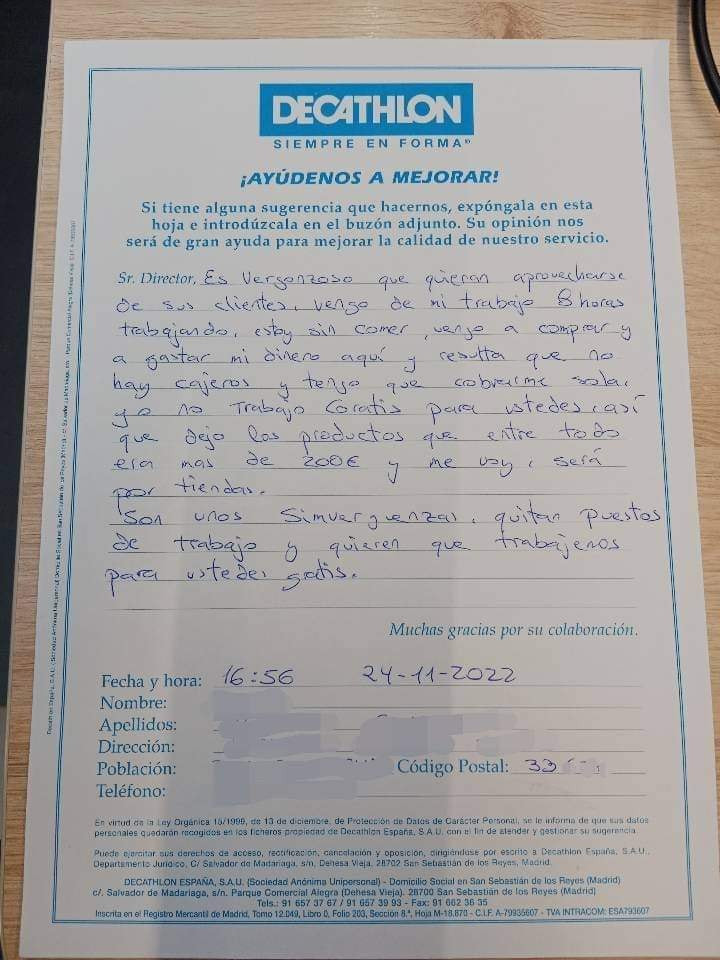 DECATHLON
SIEMPRE EN FORMA®
¡AYÚDENOS A MEJORAR!
Si tiene alguna sugerencia que hacernos, expóngala en esta
hoja e introdúzcala en el buzón adjunto. Su opinión nos
será de gran ayuda para mejorar la calidad de nuestro servicio.
Sr. Director, Es Vergonzoso que quieran aprovecharse
de sus clientes, vengo de mi trabajo 8 horas
trabajando, estoy sin comer, vengo a comprar y
a gastar mi dinero aquí y resulta que no
hay cajeros y tengo que cobrarme sola,
yo no Trabajo Gratis para ustedes, así
que dejo los productos que entre todo
era mas de 200€ y me voy, será
por tiendas.
Son unos Simverguenzas, quitan puestos
de trabajo y quieren que trabajemos
para ustedes gratis.
Muchas gracias por su colaboración.
Fecha y hora: 16:56 24-11-2022
Nombre:
Apellidos:
Dirección:
Población: Código Postal: 33
Teléfono:
En virtud de la Ley Orgánica 15/1999, de 13 de diciembre, de Protección de Datos de Carácter Personal, se le informa de que sus datos
personales quedarán recogidos en los ficheros propiedad de Decathlon España, S.A.U. con el fin de atender y gestionar su sugerencia
Puede ejercitar sus derechos de acceso, rectificación, cancelación y oposición, dirigiéndose por escrito a Decathlon España, S.A.U.,
Departamento Jurídico, C/ Salvador de Madariaga, s/n, Dehesa Vieja, 28702 San Sebastián de los Reyes, Madrid.
DECATHLON ESPAÑA, S.A.U. (Sociedad Anónima Unipersonal) - Domicilio Social en San Sebastián de los Reyes (Madrid)
c/. Salvador de Madariaga, s/n. Parque Comercial Alegra (Dehesa Vieja). 28700 San Sebastián de los Reyes (Madrid)
Tels.: 91 657 37 67 / 91 657 39 93 - Fax: 91 662 36 35
Inscrita en el Registro Mercantil de Madrid, Tomo 12.049, Libro 0, Folio 203, Sección 8.ª, Hoja M-18.870 - C.I.F. A-79935607 - TVA INTRACOM: ESA793607